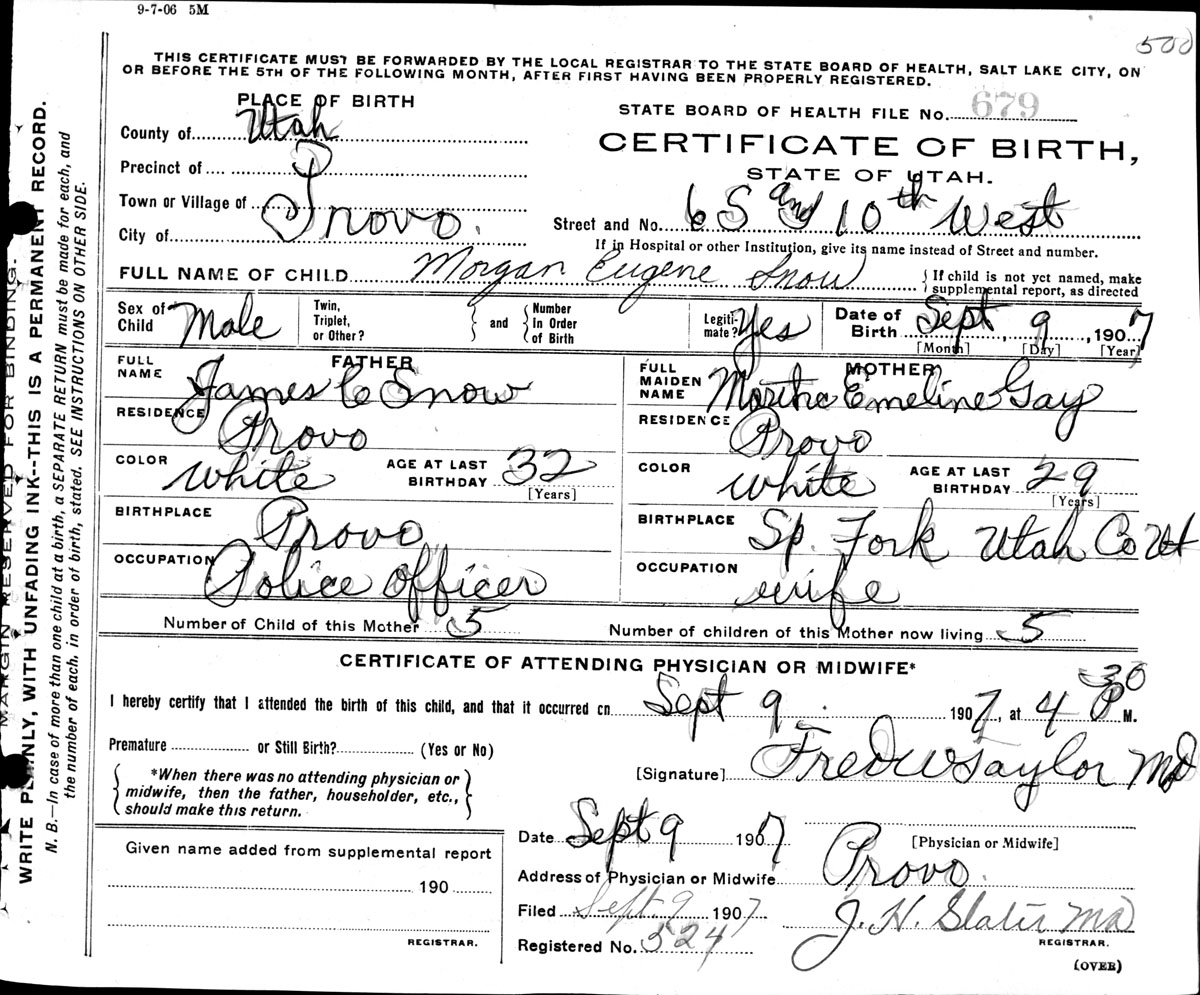 9-7-06 5M
500
THIS CERTIFICATE MUST BE FORWARDED BY THE LOCAL REGISTRAR TO THE STATE BOARD OF HEALTH, SALT LAKE CITY, ON
OR BEFORE THE 5TH OF THE FOLLOWING MONTH, AFTER FIRST HAVING BEEN PROPERLY REGISTERED.
PLACE OF BIRTH
STATE BOARD OF HEALTH FILE No. 679
County of Utah
CERTIFICATE OF BIRTH,
Precinct of
STATE OF UTAH.
Town or Village of
City of Provo.
Street and No. 6 S and 10th West
If in Hospital or other Institution, give its name instead of Street and number.
FULL NAME OF CHILD Morgan Eugene Snow
{If child is not yet named, make
supplemental report, as directed
Sex of Child Male
Twin, Triplet, or Other?
and
Number In Order of Birth
Legiti-mate? Yes
Date of Birth Sept 9, 1907
[Month] [Day] [Year]
FATHER
FULL NAME James C Snow
RESIDENCE Provo
COLOR White
AGE AT LAST BIRTHDAY 32
[Years]
BIRTHPLACE Provo
OCCUPATION Police Officer
MOTHER
FULL MAIDEN NAME Martha Emeline Gay
RESIDENCE Provo
COLOR White
AGE AT LAST BIRTHDAY 29
[Years]
BIRTHPLACE Sp. Fork Utah Co Ut
OCCUPATION wife
Number of Child of this Mother 5
Number of children of this Mother now living 5
CERTIFICATE OF ATTENDING PHYSICIAN OR MIDWIFE*
I hereby certify that I attended the birth of this child, and that it occurred on Sept 9 1907, at 4 30 P M.
Premature or Still Birth? (Yes or No)
*When there was no attending physician or
midwife, then the father, householder, etc.,
should make this return.
[Signature] Fred W Taylor MD
[Physician or Midwife]
Date Sept 9 1907
Address of Physician or Midwife Provo
Filed Sept. 9 1907
J. H. Slater MD
REGISTRAR.
Registered No. 524
(OVER)
Given name added from supplemental report
190
REGISTRAR.
MARGIN RESERVED FOR BINDING.
WRITE PLAINLY, WITH UNFADING INK--THIS IS A PERMANENT RECORD.
N. B.—In case of more than one child at a birth, a SEPARATE RETURN must be made for each, and
the number of each, in order of birth, stated. SEE INSTRUCTIONS ON OTHER SIDE.